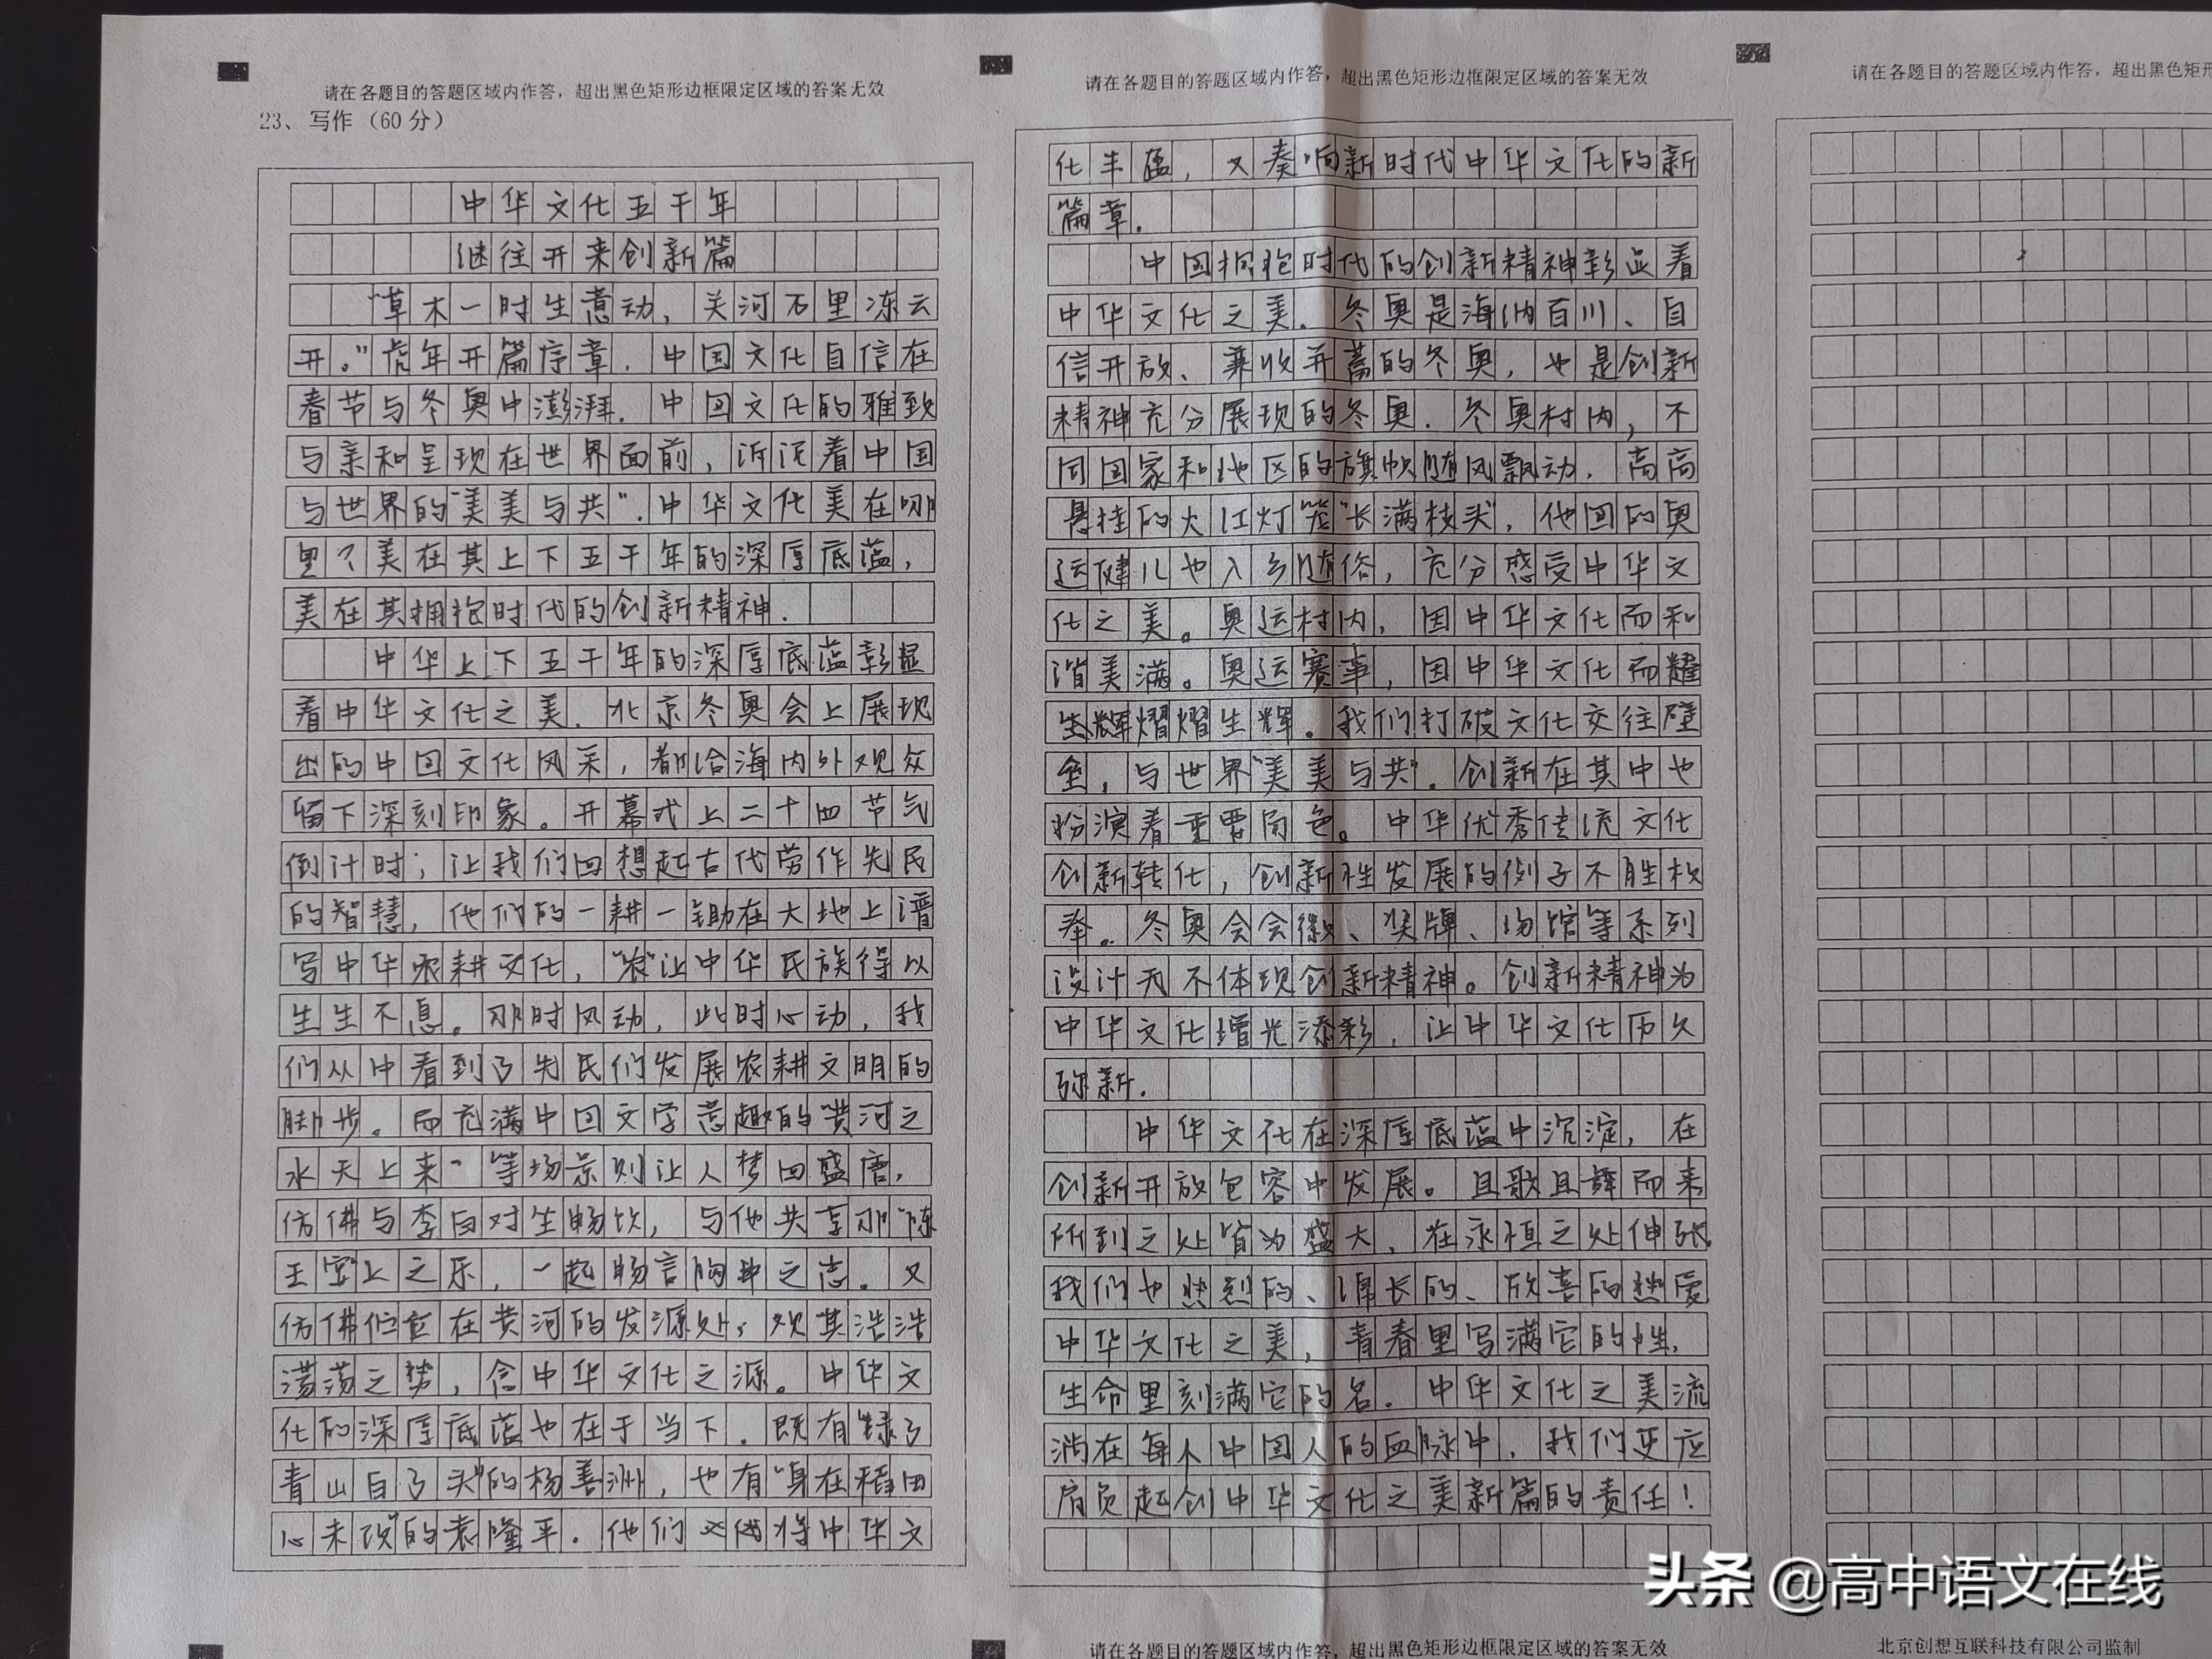 请在各题目的答题区域内作答，超出黑色矩形边框限定区域的答案无效
23、写作（60分）
中华文化五千年
继往开来创新篇
“草木一时生意动，关河万里冻云
开。”虎年开篇序章，中国文化自信在
春节与冬奥中澎湃，中国文化的雅致
与亲和呈现在世界面前，诉说着中国
与世界的“美美与共”.中华文化美在哪
里？美在其上下五千年的深厚底蕴，
美在其拥抱时代的创新精神.
中华上下五千年的深厚底蕴彰显
着中华文化之美.北京冬奥会上展现
出的中国文化风采，都给海内外观众
留下深刻印象。开幕式上二十四节气
倒计时；让我们回想起古代劳作先民
的智慧，他们的一耕一锄在大地上谱
写中华农耕文化，“农”让中华民族得以
生生不息。那时风动，此时心动，我
们从中看到了先民们发展农耕文明的
脚步。而充满中国文学意趣的“黄河之
水天上来”等场景则让人梦回盛唐，
仿佛与李白对坐畅饮，与他共享那“陈
王宴”上之乐，一起畅言胸中之志。又
仿佛伫立在黄河的发源处，观其浩浩
荡荡之势，念中华文化之源。中华文
化的深厚底蕴也在于当下.既有“绿了
青山白了头”的杨善洲，也有“身在稻田
心未改”的袁隆平.他们将中华文
请在各题目的答题区域内作答，超出黑色矩形边框限定区域的答案无效
化丰蕴，又奏响新时代中华文化的新
篇章.
中国拥抱时代的创新精神彰显着
中华文化之美.冬奥是海纳百川、自
信开放、兼收并蓄的冬奥，也是创新
精神充分展现的冬奥.冬奥村内，不
同国家和地区的旗帜随风飘动.高高
悬挂的大红灯笼“长满枝头”，他国的奥
运健儿也入乡随俗，充分感受中华文
化之美。奥运村内，因中华文化而和
谐美满。奥运赛事，因中华文化而耀
生辉熠熠生辉。我们打破文化交往壁
垒，与世界“美美与共”.创新在其中也
扮演着重要角色。中华优秀传统文化
创新转化，创新性发展的例子不胜枚
举。冬奥会会徽、奖牌、场馆等系列
设计无不体现创新精神。创新精神为
中华文化增光添彩，让中华文化历久
弥新.
中华文化在深厚底蕴中沉淀，在
创新开放包容中发展。且歌且舞而来
所到之处皆为盛大，在永恒之处伸张.
我们也热烈的、绵长的、欣喜的热爱
中华文化之美，青春里写满它的姓，
生命里刻满它的名.中华文化之美流
淌在每个中国人的血脉中，我们更应
肩负起创中华文化之美新篇的责任！
请在各题目的答题区域内作答，超出黑色矩形边框限定区域的答案无效
请在各题目的答题区域内作答，超出黑色矩形
北京创想互联科技有限公司监制
头条 @高中语文在线